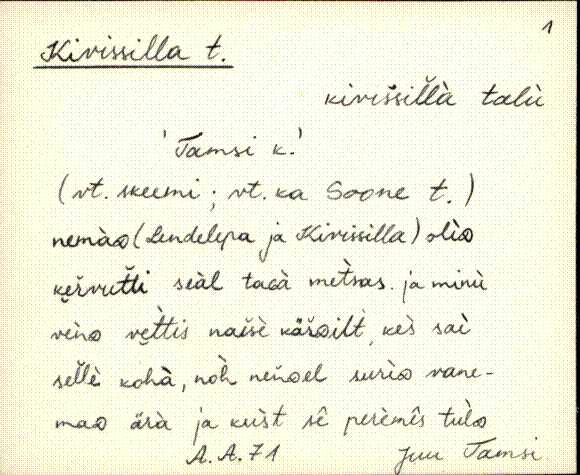 1
Kivissilla t.
kivišsil̆l̆à talù
'Tamsi k.'
(vt. skeemi; vt. ka Soone t.)
nemàᴅ (Lendelepa ja Kivissilla) olìᴅ
ke̮švut̆t̆i seàl tacà met̀sas. ja minù
vèno ve̮t̆tis naišè käšᴅilt̀, kes̀ saì
sel̆l̆è kohà, nòh nenᴅel surìᴅ vane-
maᴅ ärà ja kuìst sê perèmês tulò
A. A. 71 Juu Tamsi.